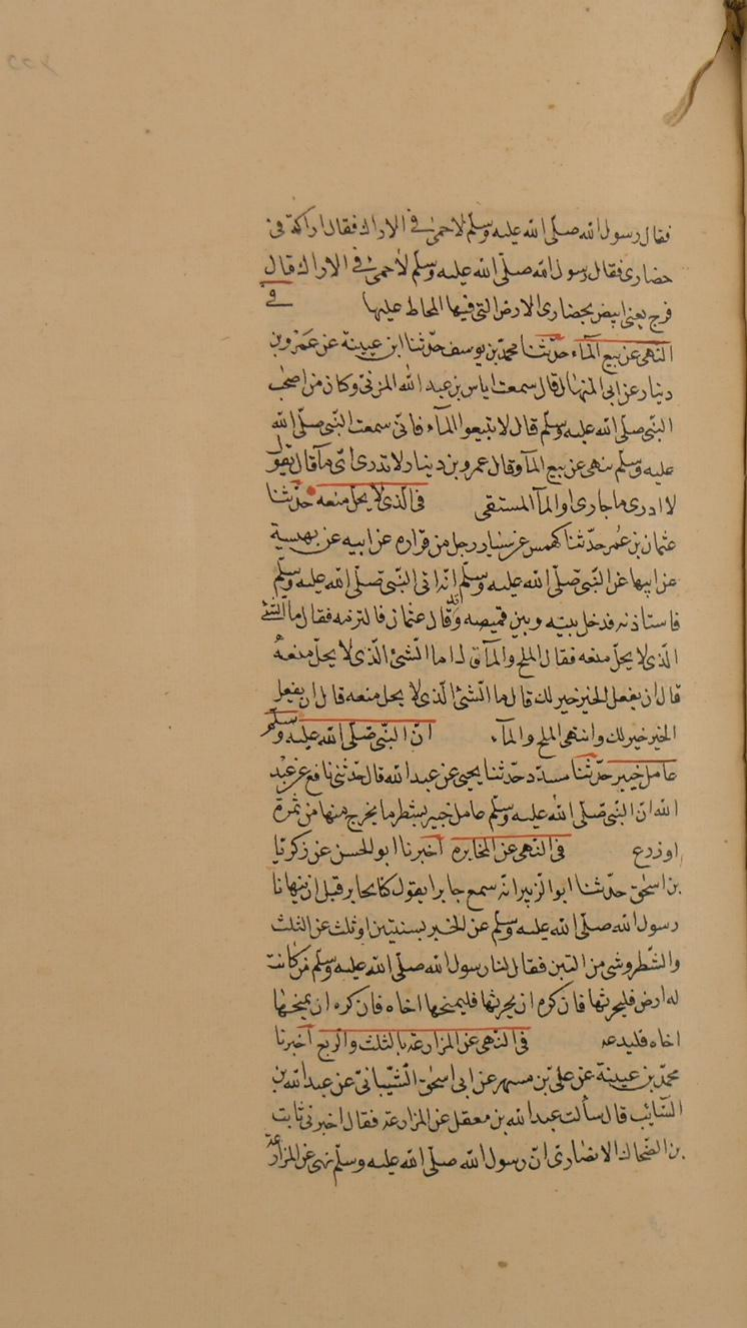 فقال رسول الله صلى الله عليه وسلم لا حمى في الاراك فقال اراكة في
حضارى فقال رسول الله صلى الله عليه وسلم لا حمى في الاراك قال
فرج يعنى ابيض بحضارى الارض التى فيها المحاط عليها في
النهى عن بيع المآء حدّثنا محمد بن يوسف حدّثنا ابن عيينة عن عمرو بن
دينار عن ابى المنهال قال سمعت اياس بن عبد الله المزنى وكان من اصحٰب
النبى صلى الله عليه وسلم قال لا تبيعوا المآء فانى سمعت النبى صلى الله
عليه وسلم ينهى عن بيع المآ وقال عمرو بن دينار لا تدرى اى مآ قال يقول
لا ادرى ما جارى او المآ المستقى في الذى لا يحل منعه حدّثنا
عثمان بن عمر حدّثنا كهمس عن سيار رجل من فزاره عن ابيه عن بهيسة
عن ابيها عن النبى صلى الله عليه وسلم انه اتى النبى صلى الله عليه وسلم
فاستاذنه فدخل بينه وبين قميصه وقال عثمان فالتزمه فقال ما الشئ
الذى لا يحلّ منعه فقال الملح والمآ قال ما الشئ الذى لا يحلّ منعهُ
قال ان يفعل الخير خير لك قال ما الشئ الذى لا يحل منعه قال ان يفعل
الخير خير لك وانتهى الملح والمآء انّ النبى صلى الله عليه وسلم
عامل خيبر حدّثنا مسدد حدّثنا يحيى عن عبد الله قال حدّثنى نافع عن عبد
الله ان النبى صلى الله عليه وسلم عامل خيبر بشطر ما يخرج منها من ثمرة
او زرع في النهى عن المخابره اخبرنا ابو الحسن عن زكريا
بن اسحٰق حدّثنا ابو الزبير انه سمع جابرا يقول كنا نخابر قبل ان ينهانا
رسول الله صلى الله عليه وسلم عن الخبر بسنتين او ثلث عن الثلث
والشطر وشى من التبن فقال لنا رسول الله صلى الله عليه وسلم من كانت
له ارض فليحرثها فان كره ان يحرثها فليمنحها اخاه فان كره ان يمنحها
اخاه فليدعه في النهى عن المزارعة بالثلث والربع اخبرنا
محمد بن عيينة عن على بن مسهر عن ابى اسحٰق الشيبانى عن عبد الله بن
السّائب قال سألت عبد الله بن معقل عن المزارعة فقال اخبرنى ثابت
بن الضحاك الانصارى ان رسول الله صلى الله عليه وسلم نهى عن المزارعة